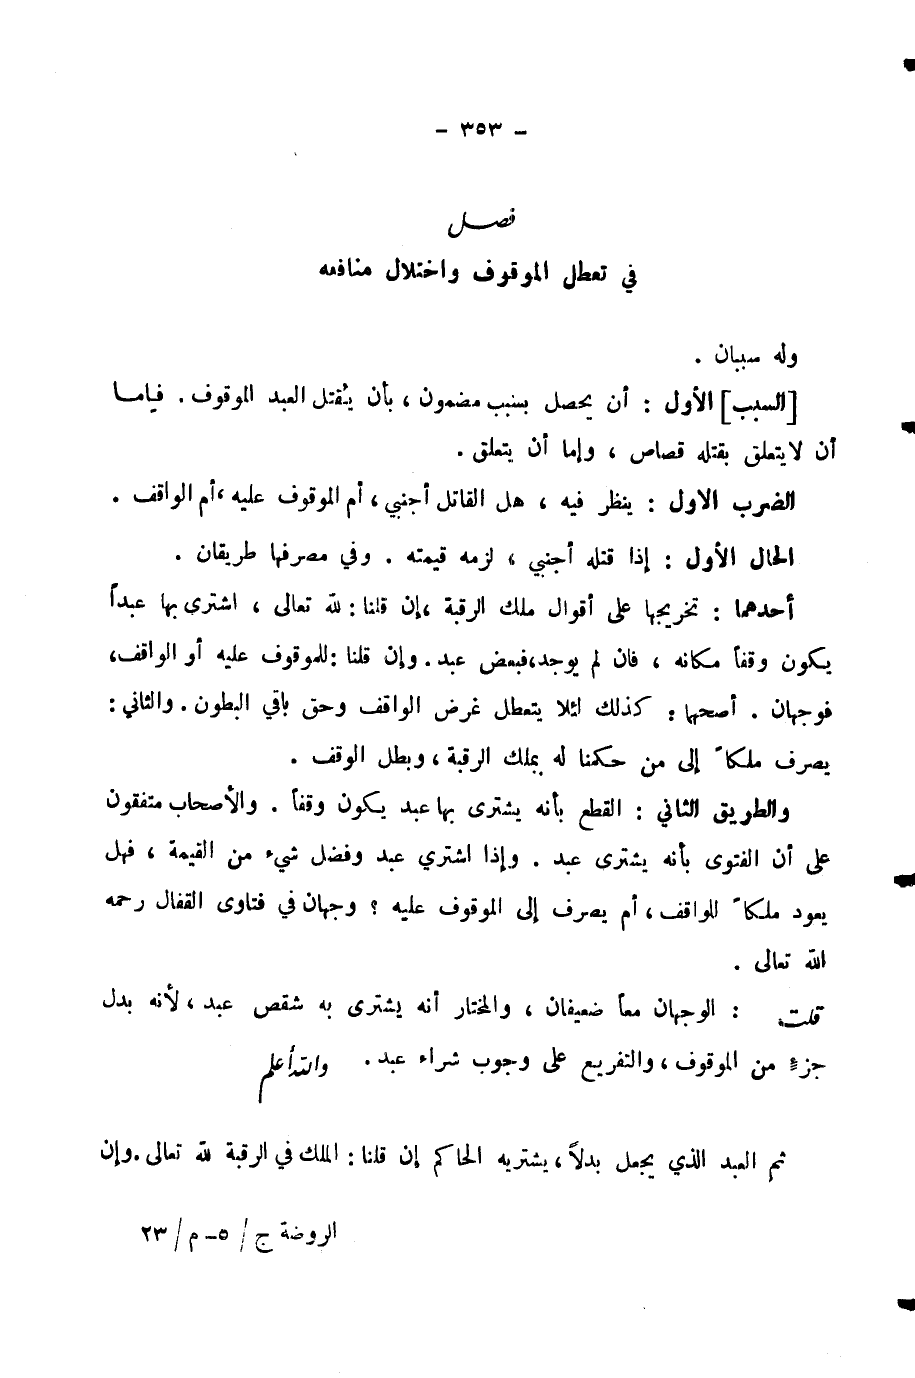 - ٣٥٣ -
فصل
في تعطل الموقوف واختلال منافعه
وله سببان .
[السبب] الأول : أن يحصل بسبب مضمون ، بأن يُقتل العبد الموقوف . فإما
أن لا يتعلق بقتله قصاص ، وإما أن يتعلق .
الضرب الاول : ينظر فيه ، هل القاتل أجنبي ، أم الموقوف عليه ، أم الواقف .
الحال الأول : إذا قتله أجنبي ، لزمه قيمته . وفي مصرفها طريقان .
أحدهما : تخريجها على أقوال ملك الرقبة ، إن قلنا : لله تعالى ، اشتري بها عبداً
يكون وقفاً مكانه ، فان لم يوجد ، فبعض عبد . وإن قلنا : للموقوف عليه أو الواقف ،
فوجهان . أصحها : كذلك لئلا يتعطل غرض الواقف وحق باقي البطون . والثاني :
يصرف ملكاً إلى من حكمنا له بملك الرقبة ، وبطل الوقف .
والطريق الثاني : القطع بأنه يشترى بها عبد يكون وقفاً . والأصحاب متفقون
على أن الفتوى بأنه يشترى عبد . وإذا اشتري عبد وفضل شيء من القيمة ، فهل
يعود ملكاً للواقف ، أم يصرف إلى الموقوف عليه ؟ وجهان في فتاوى القفال رحمه
الله تعالى .
قلت : الوجهان معاً ضعيفان ، والمختار أنه يشترى به شقص عبد ، لأنه بدل
جزء من الموقوف ، والتفريع على وجوب شراء عبد . والله أعلم
ثم العبد الذي يجعل بدلاً ، يشتريه الحاكم إن قلنا : الملك في الرقبة لله تعالى . وإن
الروضة ج / ٥ - م / ٢٣